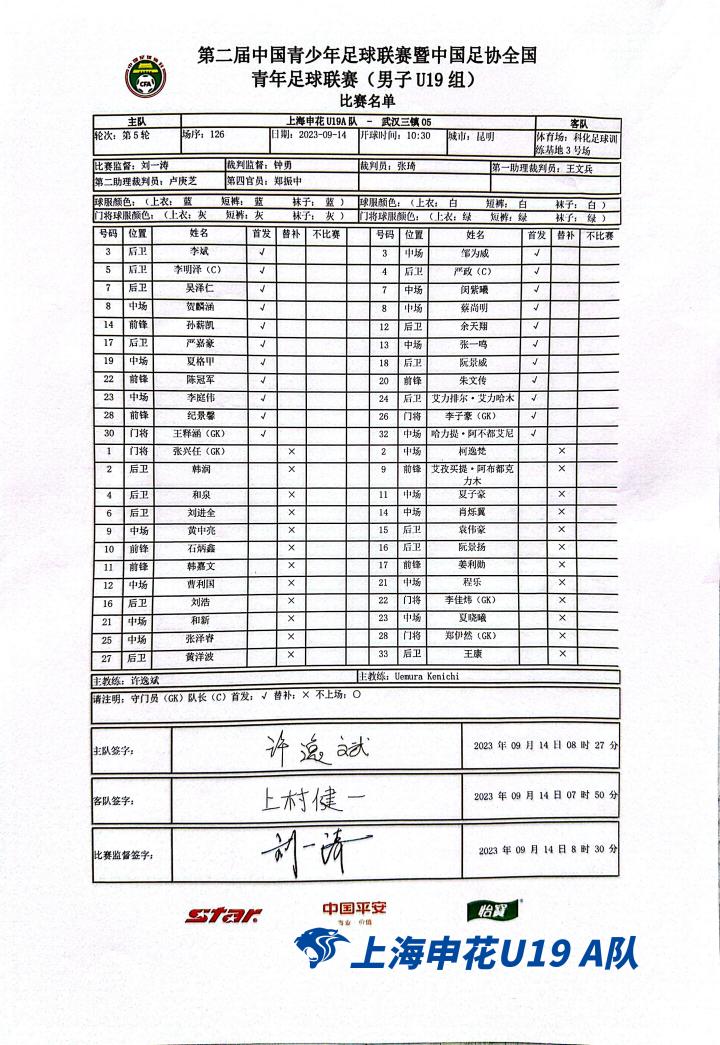 第二届中国青少年足球联赛暨中国足协全国
青年足球联赛（男子U19组）
比赛名单
CFA
主队 上海申花U19A队 - 武汉三镇05 客队
轮次：第5轮 场序：126 日期：2023-09-14 开球时间：10:30 城市：昆明 体育场：科化足球训
练基地3号场
比赛监督：刘一涛 裁判监督：钟勇 裁判员：张琦 第一助理裁判员：王文兵
第二助理裁判员：卢庚芝 第四官员：郑振中
球服颜色：（上衣： 蓝 短裤： 蓝 袜子： 蓝 ） 球服颜色：（上衣： 白 短裤： 白 袜子： 白 ）
门将球服颜色：（上衣：灰 短裤：灰 袜子： 灰 ） 门将球服颜色：（上衣：绿 短裤：绿 袜子： 绿 ）
号码 位置 姓名 首发 替补 不比赛 号码 位置 姓名 首发 替补 不比赛
3 后卫 李斌 √ 3 中场 邹为威 √
5 后卫 李明泽（C） √ 4 后卫 严政（C） √
7 后卫 吴泽仁 √ 7 中场 闵紫曦 √
8 中场 贺麟涵 √ 8 中场 蔡尚明 √
14 前锋 孙薪凯 √ 12 后卫 余天翔 √
17 后卫 严嘉豪 √ 13 中场 张一鸣 √
19 中场 夏格甲 √ 18 后卫 阮景威 √
22 前锋 陈冠军 √ 20 前锋 朱文传 √
23 中场 李庭伟 √ 24 后卫 艾力排尔·艾力哈木 √
28 前锋 纪景馨 √ 26 门将 李子豪（GK） √
30 门将 王释涵（GK） √ 32 中场 哈力提·阿不都艾尼 √
1 门将 张兴任（GK） × 2 中场 柯逸梵 ×
2 后卫 韩润 × 9 前锋 艾孜买提·阿布都克 ×
力木
4 后卫 和泉 × 11 中场 夏子豪 ×
6 后卫 刘进全 × 14 中场 肖烁翼 ×
9 中场 黄中亮 × 15 后卫 袁伟豪 ×
10 前锋 石炳鑫 × 16 后卫 阮景扬 ×
11 前锋 韩嘉文 × 17 前锋 姜利勋 ×
12 中场 曹利国 × 21 中场 程乐 ×
16 后卫 刘浩 × 22 门将 李佳炜（GK） ×
21 中场 和新 × 23 中场 夏晓曦 ×
25 中场 张泽睿 × 28 门将 郑伊然（GK） ×
27 后卫 黄洋波 × 33 后卫 王康 ×
主教练：许逸斌 主教练：Uemura Kenichi
请注明：守门员（GK）队长（C）首发：√ 替补：× 不上场：○
主队签字： 许逸斌 2023 年 09 月 14 日 08 时 27 分
客队签字： 上村健一 2023 年 09 月 14 日 07 时 50 分
比赛监督签字： 刘一涛 2023 年 09 月 14 日 8 时 30 分
star 中国平安 怡宝
专业 价值
上海申花U19 A队